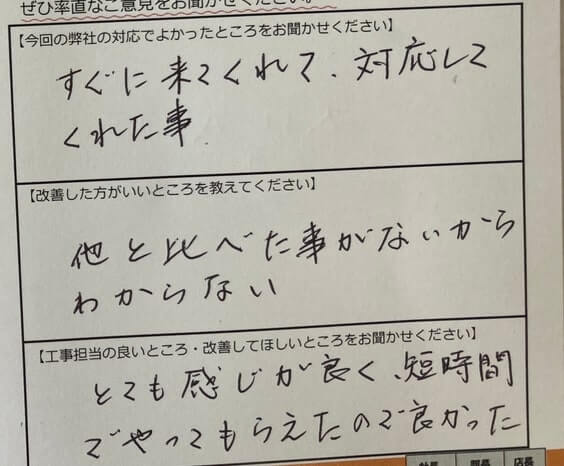 ぜひ率直なご意見をお聞かせください。
【今回の弊社の対応でよかったところをお聞かせください】
すぐに来てくれて、対応して
くれた事
【改善した方がいいところを教えてください】
他と比べた事がないから
わからない
【工事担当の良いところ・改善してほしいところをお聞かせください】
とても感じが良く、短時間
でやってもらえたので良かった
店長